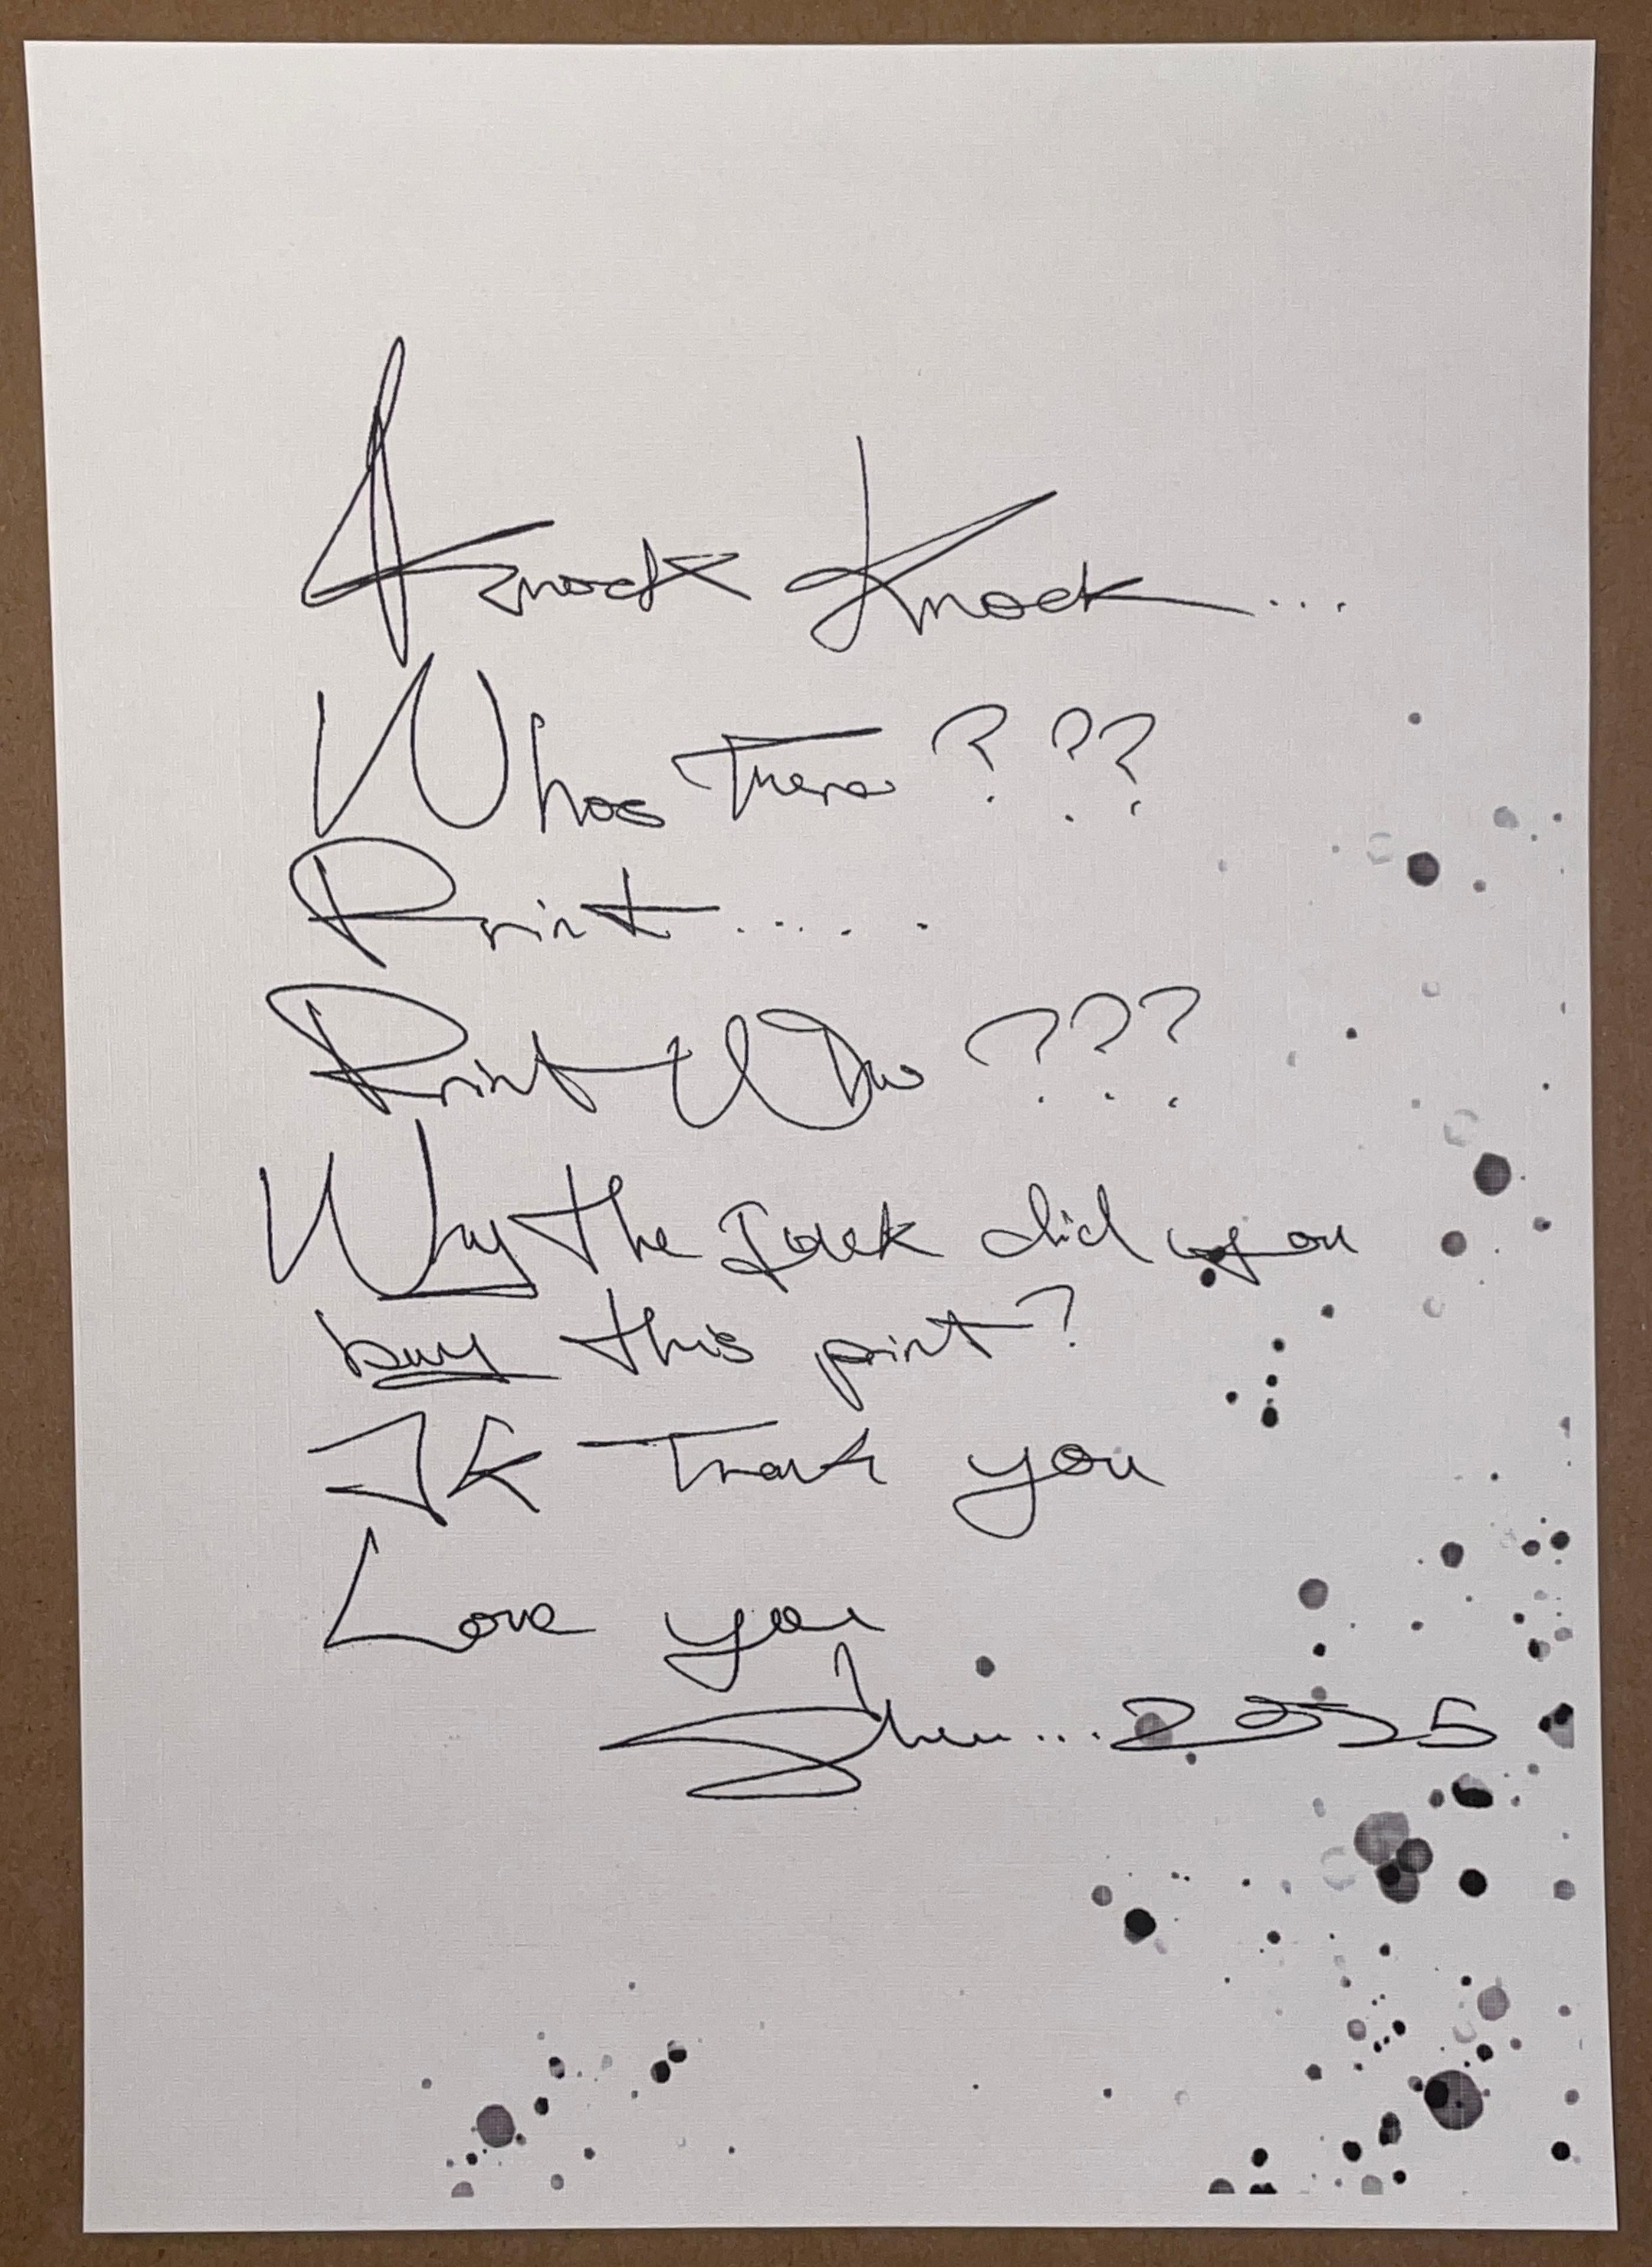 Knock Knock...
Whos There ???
Print......
Print Who ???
Why the Fuck did you
buy this print?
JK Thank you
Love you
2025